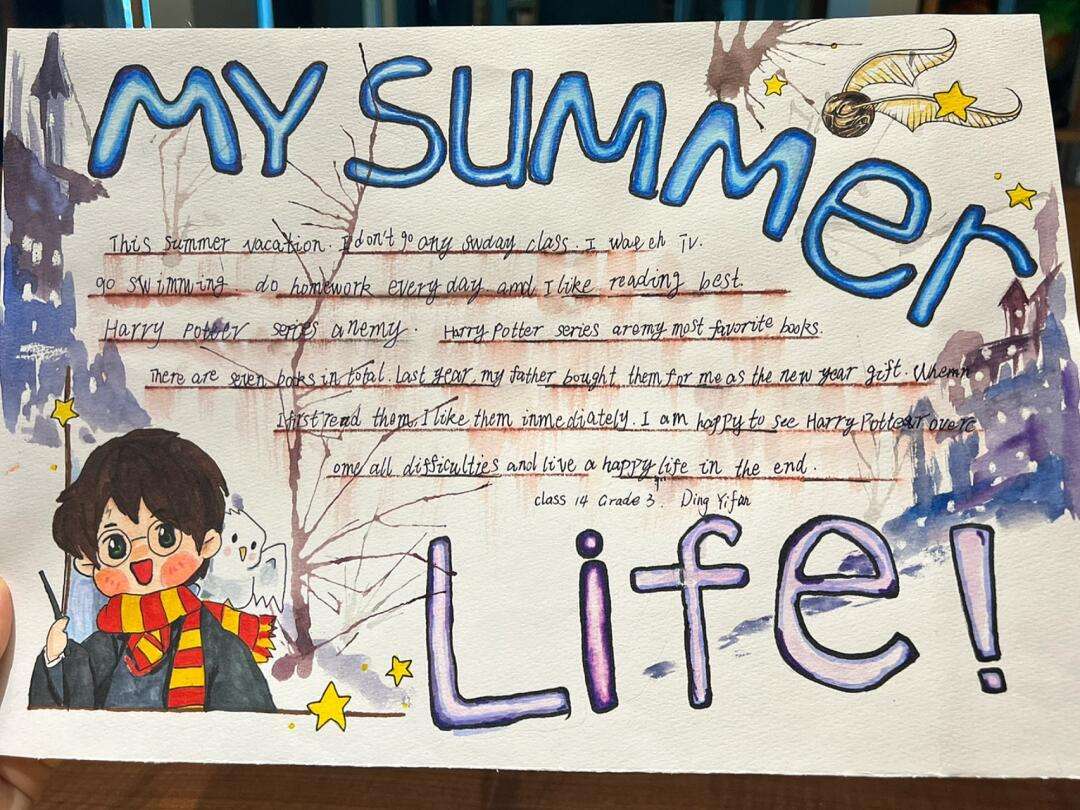 MY SUMMer
This summer vacation. I don't go any swday class. I waeeh TV.
go swimming. do homework every day and I like reading best.
Harry Potter series anemy. Harry Potter series aremy most favorite books.
There are seven books in total. Last year, my father bought them for me as the new year gift. Whemn
I first read them, I like them inmediately. I am happy to see Harry Pottear overc
ome all difficulties and live a happy life in the end.
class 14 Grade 3. Ding Yifan
Life!